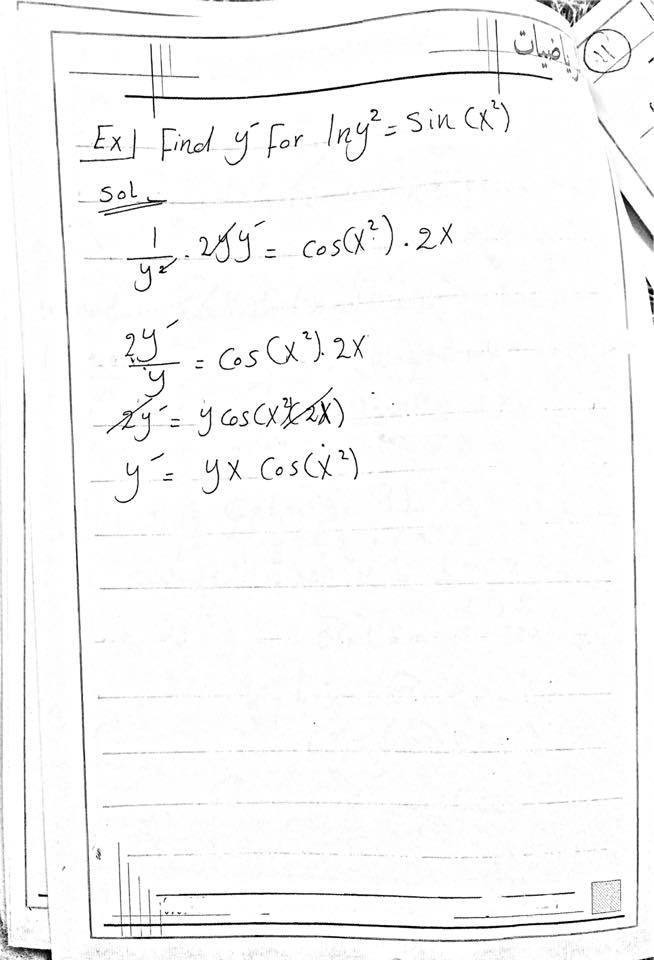 رياضيات
Ex| Find y´ for lny² = sin(x²)
Sol.
1/y² . 2yy´ = cos(x²) . 2x
2y´/y = cos(x²). 2x
2y´ = y cos(x²)(2x)
y´ = yx cos(x²)